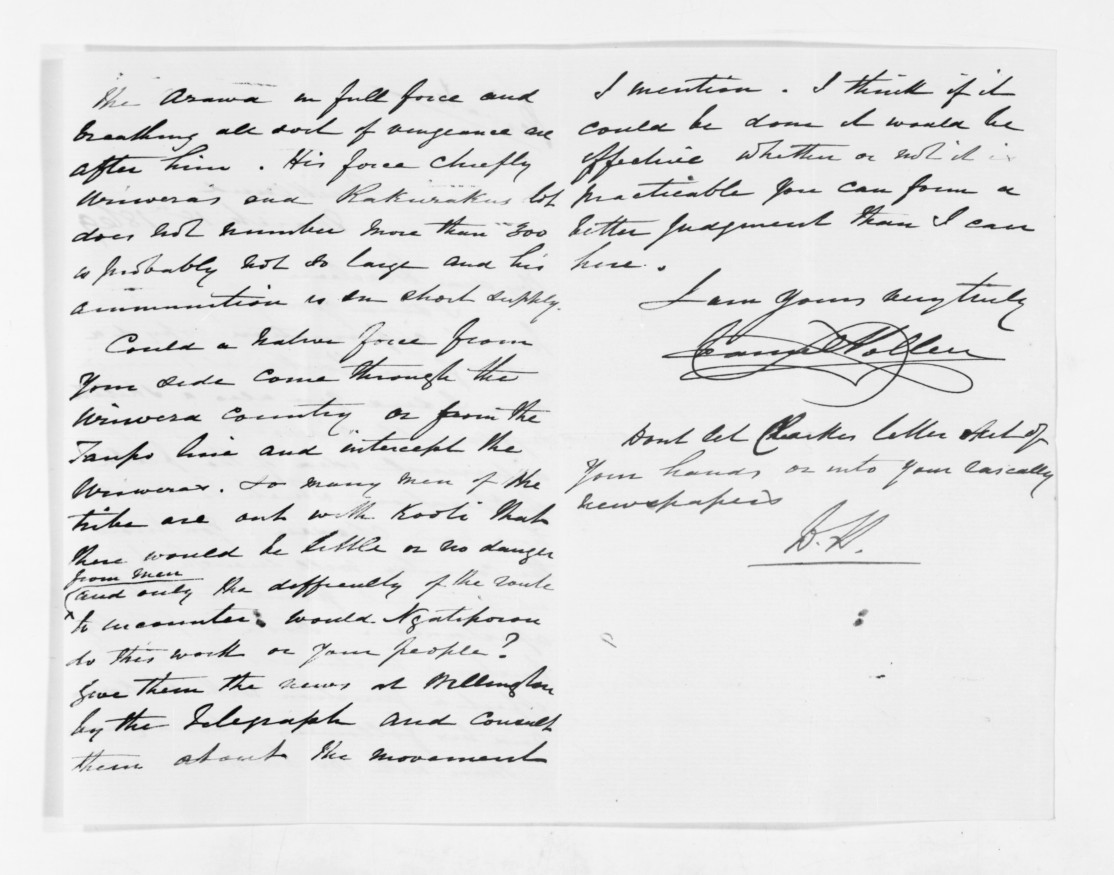 the Arawa in full force and
breathing all sort of vengeance are
after him. His force chiefly
Uriweras and Rakurakus lot
does not number more than 300
is probably not so large and his
ammunition is in short supply.
Could a native force from
your side come through the
Uriwera country or from the
Taupo line and intercept the
Uriweras. So many men of the
tribe are out with Kooti that
there would be little or no danger
from men
and only the difficulty of the route
to encounter. Would Ngatiporou
do this work or your people?
Give them the news at Wellington
by the Telegraph and consult
them about the movement
I mention. I think if it
could be done it would be
effective whether or not it is
practicable you can form a
better judgment than I can
here.
I am yours very truly
Pollen
Dont let Clarkes letter out of
your hands or into your rascally
newspapers
D.P.